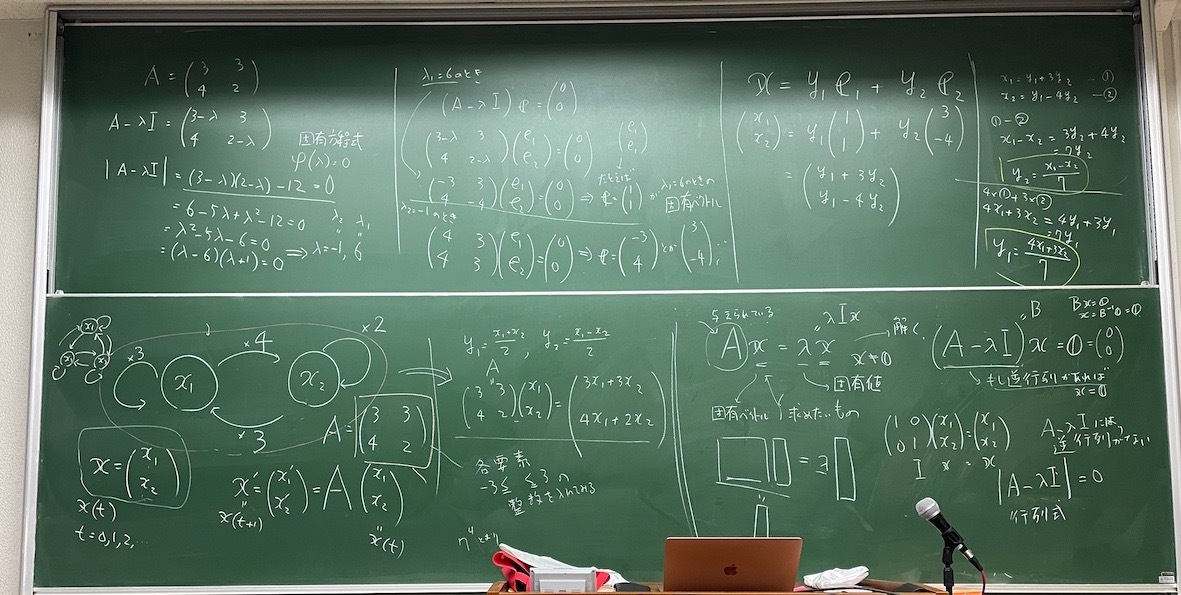 A = (3 3
4 2)
A-λI = (3-λ 3
4 2-λ)
固有方程式
φ(λ)=0
|A-λI| = (3-λ)(2-λ)-12=0
= 6-5λ+λ²-12=0
= λ²-5λ-6=0
λ₂ λ₁
= (λ-6)(λ+1)=0 ⇒ λ=-1, 6
λ₁=6のとき
(A-λI) e = (0
0)
(3-λ 3
4 2-λ)(e₁
e₂)=(0
0)
(e₁
e₂)
(-3 3
4 -4)(e₁
e₂)=(0
0) ⇒ たとえば e=(1
1) が λ₁=6のときの
固有ベクトル
λ₂=-1のとき
(4 3
4 3)(e₁
e₂)=(0
0) ⇒ e=(-3
4) とか (3
-4)
x = y₁e₁ + y₂e₂
(x₁
x₂) = y₁(1
1) + y₂(3
-4)
= (y₁+3y₂
y₁-4y₂)
x₁=y₁+3y₂ —①
x₂=y₁-4y₂ —②
①-②
x₁-x₂=3y₂+4y₂
=7y₂
y₂=x₁-x₂/7
4×①+3×②
4x₁+3x₂=4y₁+3y₁
=7y₁
y₁=4x₁+3x₂/7
x₁
×3
×4
×2
x₁
x₂
×3
A=(3 3
4 2)
x=(x₁
x₂)
x(t)
t=0,1,2,…
x'=(x₁'
x₂')=A(x₁
x₂)
x(t+1)
x(t)
y₁=x₁+x₂/2, y₂=x₁-x₂/2
A
(3 3
4 2)(x₁
x₂)=(3x₁+3x₂
4x₁+2x₂)
各要素
-3≤ ≤3の
整数を入れてみる
与えられている
λIx
Ax = λx x≠0
固有値
固有ベクトル
求めたいもの
=λ
解く
B
(A-λI)x=0=(0
0)
Bx=0
x=B⁻¹0=0
もし逆行列があれば
x=0
(1 0
0 1)(x₁
x₂)=(x₁
x₂)
I x = x
A-λIには
逆行列がない
|A-λI|=0
行列式